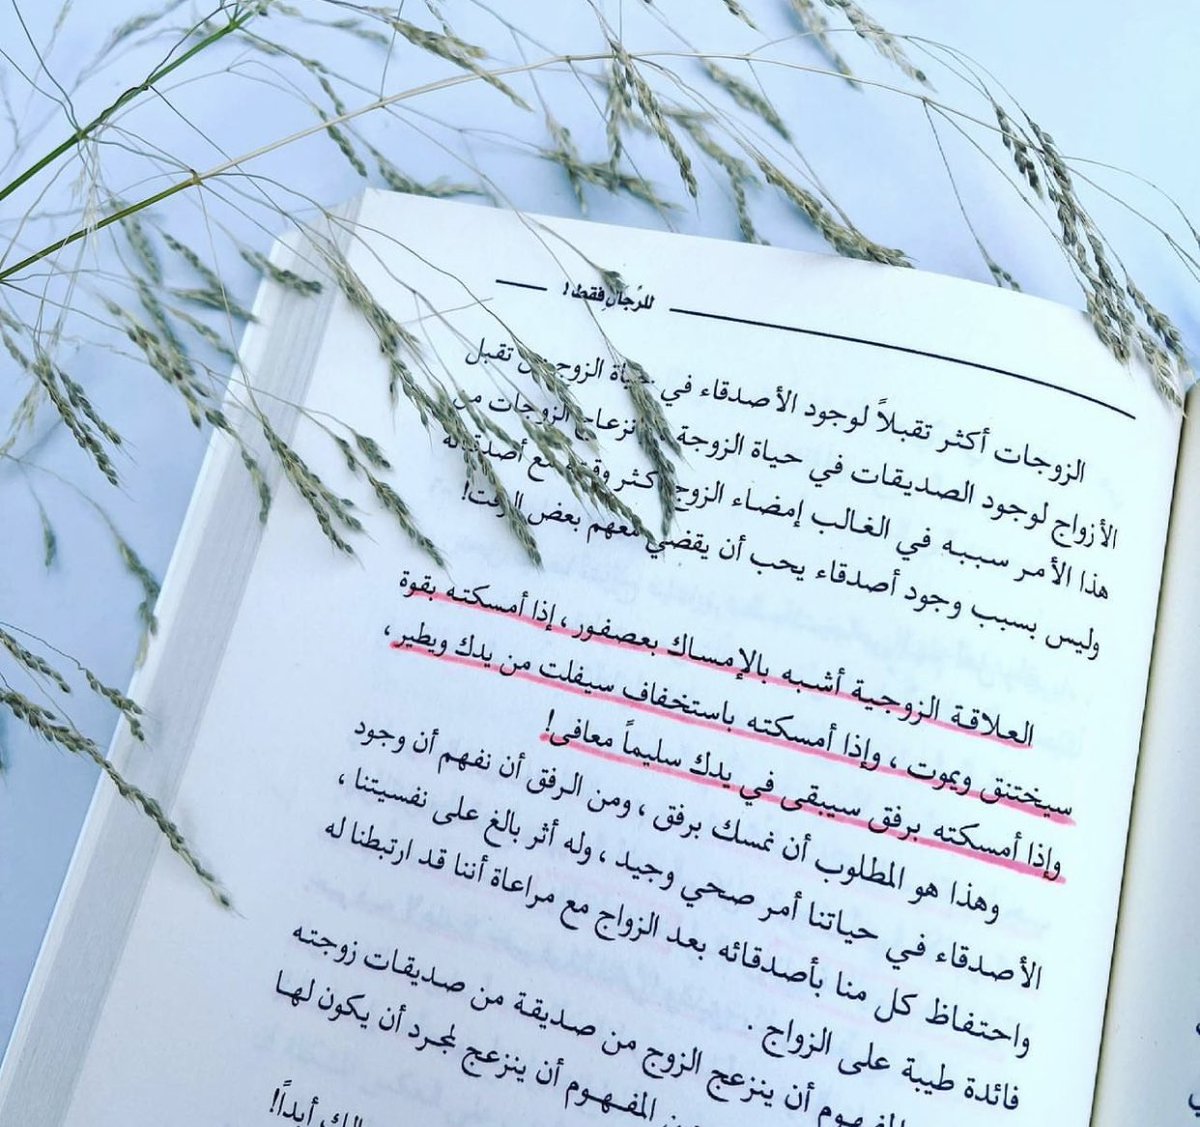 للرجال فقط!
الزوجات أكثر تقبلاً لوجود الأصدقاء في حياة الزوج من تقبل
الأزواج لوجود الصديقات في حياة الزوجة انزعاج الزوجات من
هذا الأمر سببه في الغالب إمضاء الزوج أكثر وقته مع أصدقائه
وليس بسبب وجود أصدقاء يحب أن يقضي معهم بعض الوقت!
العلاقة الزوجية أشبه بالإمساك بعصفور، إذا أمسكته بقوة
سيختنق ويموت، وإذا أمسكته باستخفاف سيفلت من يدك ويطير،
وإذا أمسكته برفق سيبقى في يدك سليماً معافى!
وهذا هو المطلوب أن نمسك برفق، ومن الرفق أن نفهم أن وجود
الأصدقاء في حياتنا أمر صحي وجيد، وله أثر بالغ على نفسيتنا،
واحتفاظ كل منا بأصدقائه بعد الزواج مع مراعاة أننا قد ارتبطنا له
فائدة طيبة على الزواج.
المفهوم أن ينزعج الزوج من صديقة من صديقات زوجته
المفهوم أن ينزعج لمجرد أن يكون لها
أبداً!